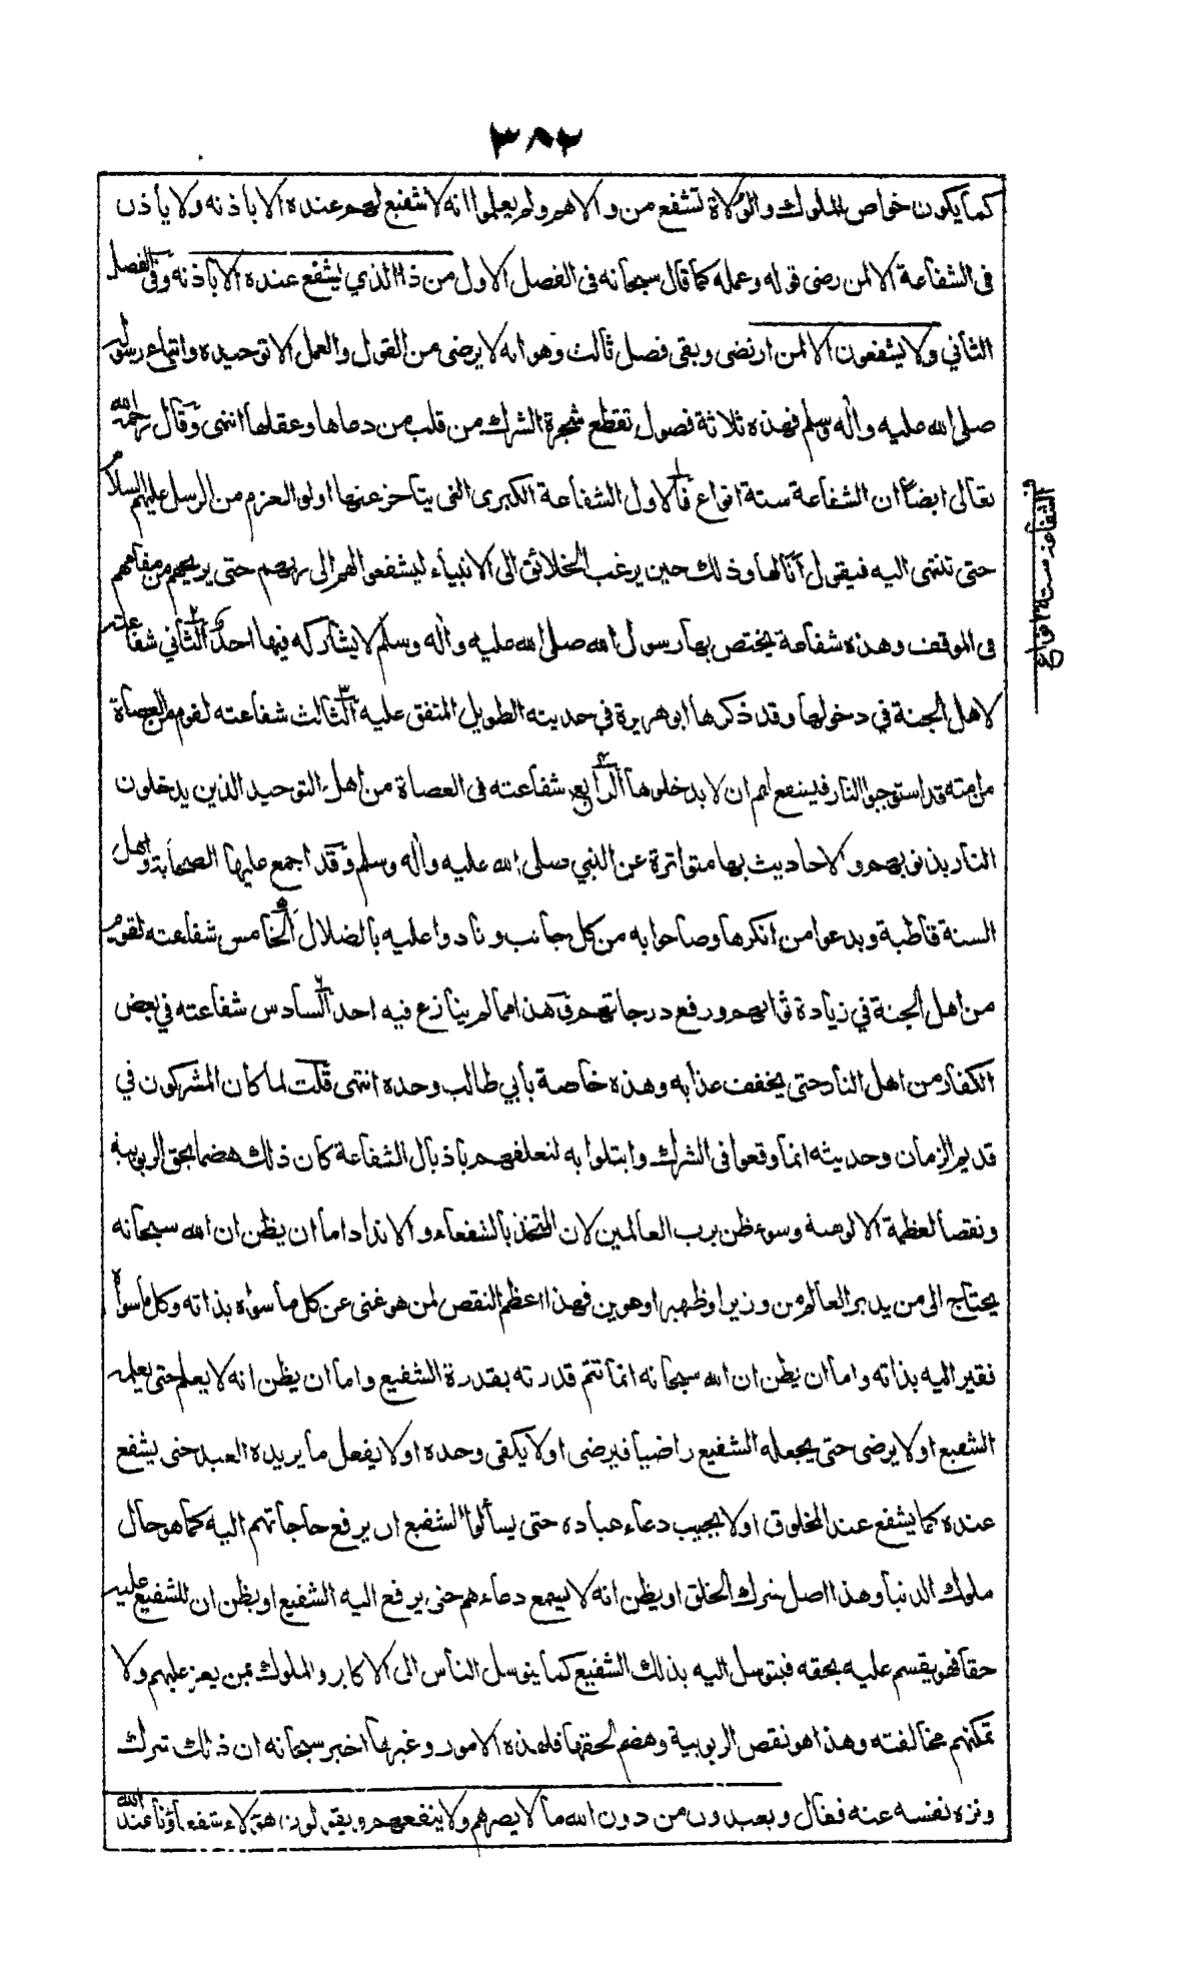 ٣٨٢
كما يكون خواص الملوك والولاة تشفع من والاهم ولم يعلموا انه لا شفيع لهم عنده الا باذنه ولا ياذن
فى الشفاعة الا لمن رضى قوله وعمله كما قال سبحانه فى الفصل الاول من ذا الذي يشفع عنده الا باذنه وفى الفصل
الثاني ولا يشفعون الا لمن ارتضى وبقى فصل ثالث وهو انه لا يرضى من القول والعمل الا توحيده واتباع رسوله
صلى الله عليه واله وسلم فهذه ثلاثة فصول تقطع شجرة الشرك من قلب من دعاها وعقلها انتهى وقال رحمه الله
تعالى ايضا ان الشفاعة ستة انواع فالاول الشفاعة الكبرى التى يتاخر عنها اولو العزم من الرسل عليهم السلام
حتى تنتهى اليه فيقول انا لها وذلك حين يرغب الخلائق الى الانبياء ليشفعوا لهم الى ربهم حتى يريحهم من مقامهم
فى الموقف وهذه شفاعة يختص بها رسول الله صلى الله عليه واله وسلم لا يشاركه فيها احد الثاني شفاعته
لاهل الجنة في دخولها وقد ذكرها ابو هريرة في حديثه الطويل المتفق عليه الثالث شفاعته لقوم من العصاة
من امته قد استوجبوا النار فيشفع لهم ان لا يدخلوها الرابع شفاعته فى العصاة من اهل التوحيد الذين يدخلون
النار بذنوبهم والاحاديث بها متواترة عن النبي صلى الله عليه واله وسلم وقد اجمع عليها الصحابة واهل
السنة قاطبة وبدعوا من انكرها وصاحوا به من كل جانب ونادوا عليه بالضلال الخامس شفاعته لقوم
من اهل الجنة في زيادة ثوابهم ورفع درجاتهم وهذا مما لم ينازع فيه احد السادس شفاعته في بعض
الكفار من اهل النار حتى يخفف عذابه وهذه خاصة بابي طالب وحده انتهى قلت لما كان المشركون في
قديم الزمان وحديثه انما وقعوا فى الشرك وابتلوا به لتعلقهم باذيال الشفاعة كان ذلك هضما بحق الربوبية
ونقصا لعظمة الالوهية وسوء ظن برب العالمين لان المتخذ بالشفعاء والانداد اما ان يظن ان الله سبحانه
يحتاج الى من يدبر العالم من وزير او ظهير او عوين فهذا اعظم النقص لمن هو غنى عن كل ما سواه بذاته وكل ما سواه
فقير اليه بذاته واما ان يظن ان الله سبحانه انما تتم قدرته بقدرة الشفيع واما ان يظن انه لا يعلم حتى يعلمه
الشفيع او لا يرضى حتى يجعله الشفيع راضيا فيرضى او لا يكفى وحده او لا يفعل ما يريده العبد حتى يشفع
عنده كما يشفع عند المخلوق او لا يجيب دعاء عباده حتى يسألوا الشفيع ان يرفع حاجاتهم اليه كما هو حال
ملوك الدنيا وهذا اصل شرك الخلق او يظن انه لا يسمع دعاءهم حتى يرفع اليه الشفيع او يظن ان للشفيع عليه
حقا فهو يقسم عليه بحقه فيتوسل اليه بذلك الشفيع كما يتوسل الناس الى الاكابر والملوك بمن يعز عليهم ولا
تمكنهم مخالفته وهذا هو نقص الربوبية وهضم لحقها فلهذه الامور وغيرها اخبر سبحانه ان ذلك شرك
ونزه نفسه عنه فقال ويعبدون من دون الله ما لا يضرهم ولا ينفعهم ويقولون هؤلاء شفعاؤنا عند الله
الشفاعة ستة انواع